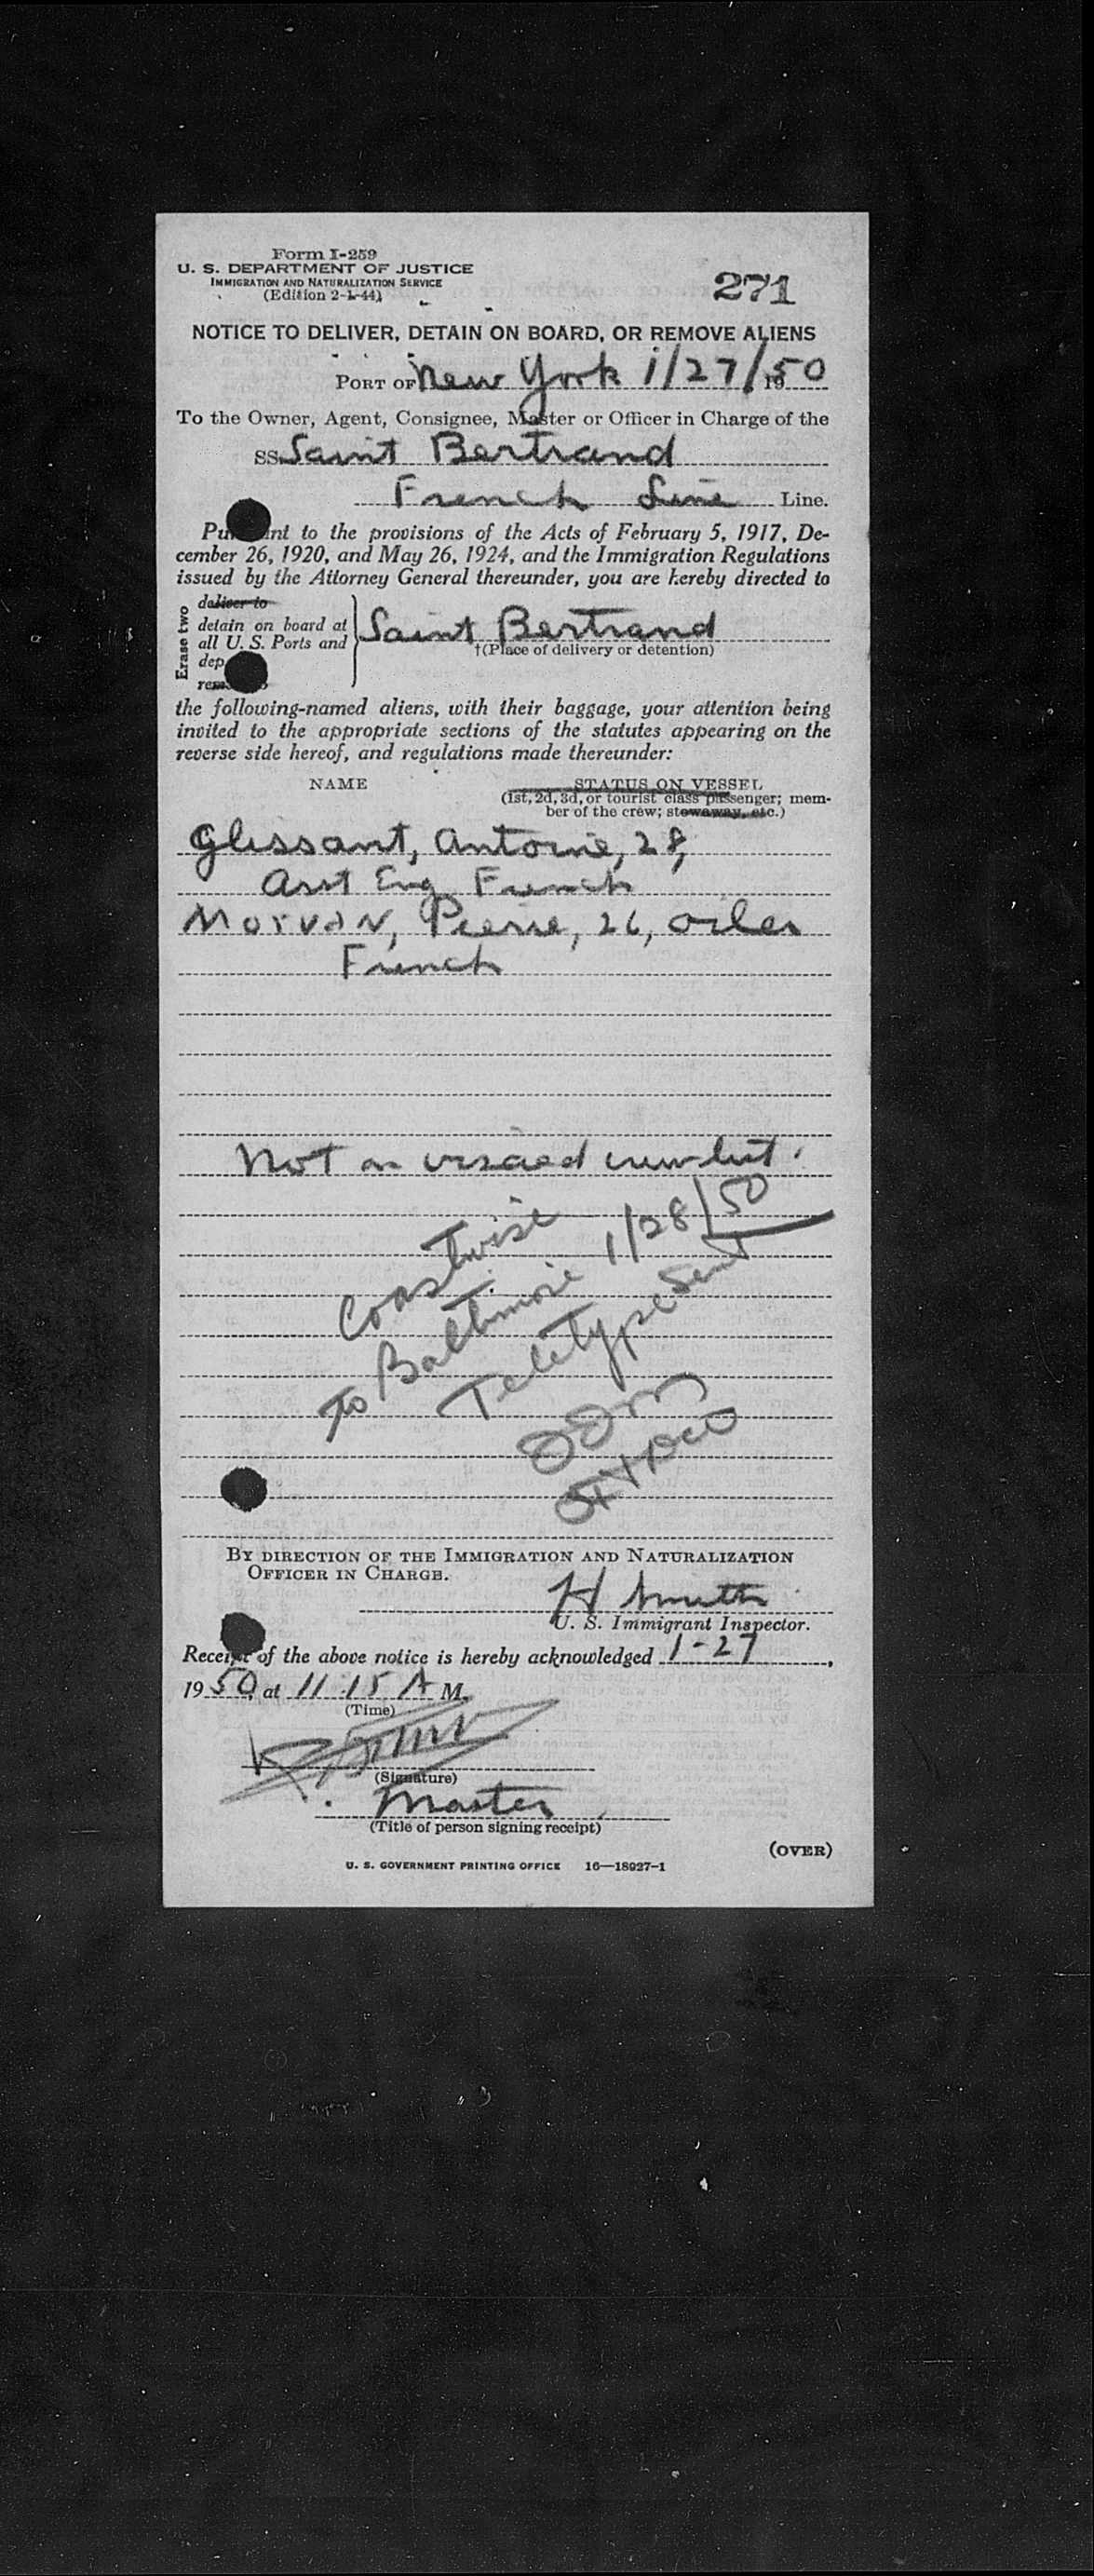 Form I-259
U. S. DEPARTMENT OF JUSTICE
IMMIGRATION AND NATURALIZATION SERVICE
(Edition 2-1-44)
271
NOTICE TO DELIVER, DETAIN ON BOARD, OR REMOVE ALIENS
PORT OF New York 1/27/, 1950
To the Owner, Agent, Consignee, Master or Officer in Charge of the
SS. Saint Bertrand
French Line Line.
Pu nt to the provisions of the Acts of February 5, 1917, De-
cember 26, 1920, and May 26, 1924, and the Immigration Regulations
issued by the Attorney General thereunder, you are hereby directed to
Erase two
deliver to
detain on board at
all U. S. Ports and
dep
rem
Saint Bertrand
†(Place of delivery or detention)
the following-named aliens, with their baggage, your attention being
invited to the appropriate sections of the statutes appearing on the
reverse side hereof, and regulations made thereunder:
NAME
STATUS ON VESSEL
(1st, 2d, 3d, or tourist class passenger; mem-
ber of the crew; stowaway, etc.)
Glissant, Antoine, 28,
Asst Eng French
MORVAN, Pierre, 26, oiler
French
Not on visaed crew list.
Coastwise
To Baltimore 1/28/50
Teletype Sent
BY DIRECTION OF THE IMMIGRATION AND NATURALIZATION
OFFICER IN CHARGE.
H Smith
U. S. Immigrant Inspector.
Receipt of the above notice is hereby acknowledged 1-27,
1950, at 11:15 A M.
(Time)
(Signature)
Master
(Title of person signing receipt)
(OVER)
U. S. GOVERNMENT PRINTING OFFICE 16—18927-1